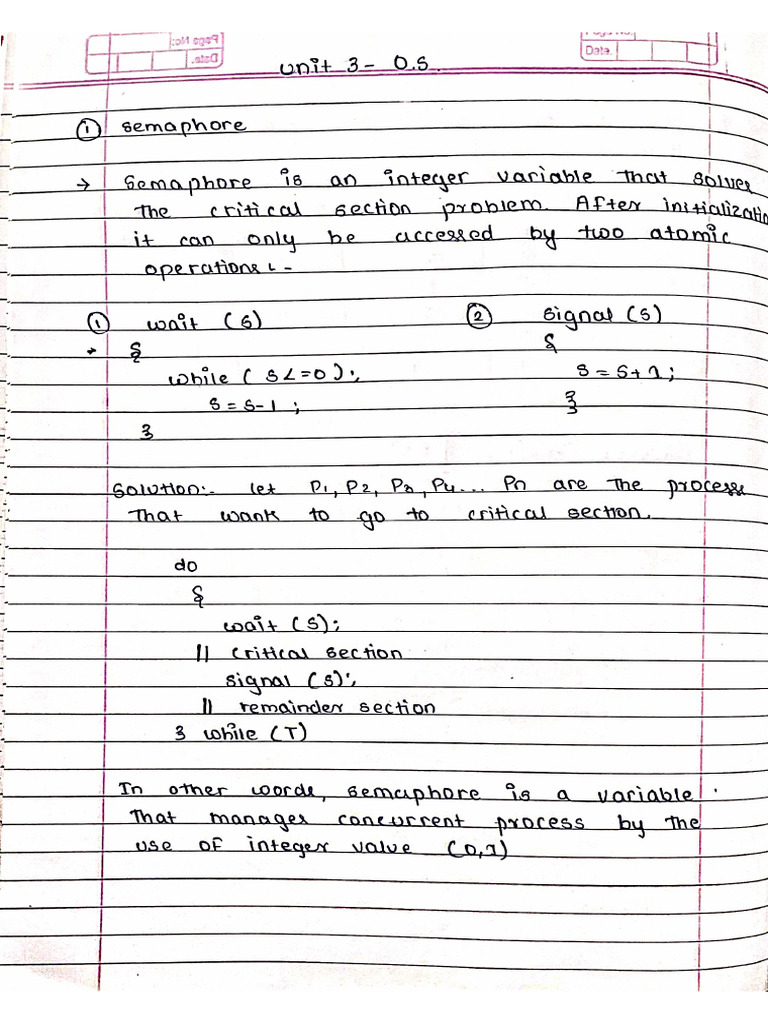 Page No:
Date.
Page No.
Date.
Unit 3 - O.S.
① Semaphore
→ Semaphore is an integer variable that solves
the critical section problem. After initializatio
it can only be accessed by two atomic
operations :-
① wait (S) ② signal (S)
{ {
while ( S <= 0 ); S = S + 1 ;
S = S - 1 ; }
}
Solution:- let P1, P2, P3, P4 ... Pn are the process
that wants to go to critical section.
do
{
wait (S);
|| critical section
signal (S);
|| remainder section
} while (T)
In other words, semaphore is a variable
that manages concurrent process by the
use of integer value (0,1)